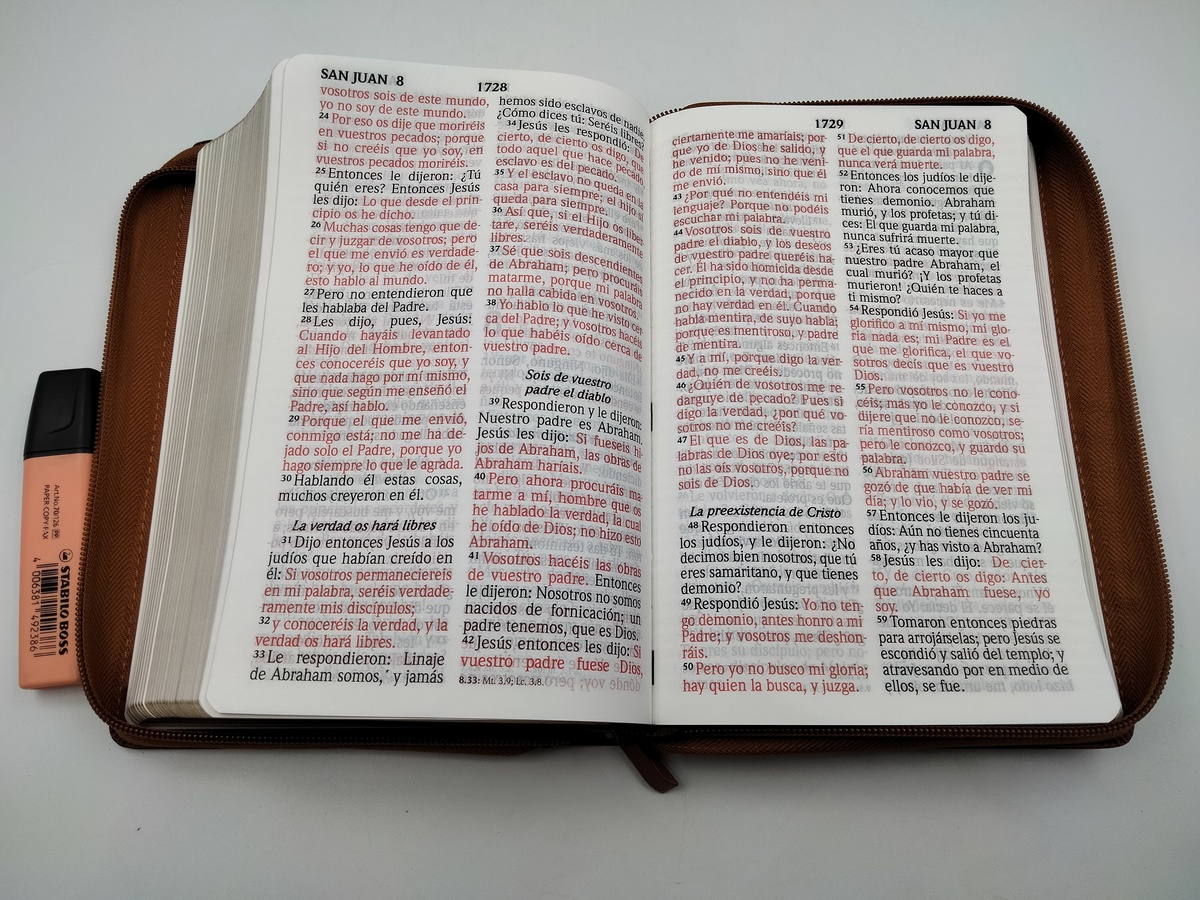 SAN JUAN 8
1728
vosotros sois de este mundo,
yo no soy de este mundo.
24 Por eso os dije que moriréis
en vuestros pecados; porque
si no creéis que yo soy, en
vuestros pecados moriréis.
25 Entonces le dijeron: ¿Tú
quién eres? Entonces Jesús
les dijo: Lo que desde el prin-
cipio os he dicho.
26 Muchas cosas tengo que de-
cir y juzgar de vosotros; pero
el que me envió es verdade-
ro; y yo, lo que he oído de él,
esto hablo al mundo.
27 Pero no entendieron que
les hablaba del Padre.
28 Les dijo, pues, Jesús:
Cuando hayáis levantado
al Hijo del Hombre, enton-
ces conoceréis que yo soy, y
que nada hago por mí mismo,
sino que según me enseñó el
Padre, así hablo.
29 Porque el que me envió,
conmigo está; no me ha de-
jado solo el Padre, porque yo
hago siempre lo que le agrada.
30 Hablando él estas cosas,
muchos creyeron en él.
La verdad os hará libres
31 Dijo entonces Jesús a los
judíos que habían creído en
él: Si vosotros permaneciereis
en mi palabra, seréis verdade-
ramente mis discípulos;
32 y conoceréis la verdad, y la
verdad os hará libres.
33 Le respondieron: Linaje
de Abraham somos, y jamás
hemos sido esclavos de nadie.
¿Cómo dices tú: Seréis libres?
34 Jesús les respondió: De
cierto, de cierto os digo, que
todo aquel que hace pecado,
esclavo es del pecado.
35 Y el esclavo no queda en la
casa para siempre; el hijo sí
queda para siempre.
36 Así que, si el Hijo os liber-
tare, seréis verdaderamente
libres.
37 Sé que sois descendientes
de Abraham; pero procuráis
matarme, porque mi palabra
no halla cabida en vosotros.
38 Yo hablo lo que he visto cer-
ca del Padre; y vosotros hacéis
lo que habéis oído cerca de
vuestro padre.
Sois de vuestro
padre el diablo
39 Respondieron y le dijeron:
Nuestro padre es Abraham.
Jesús les dijo: Si fueseis hi-
jos de Abraham, las obras de
Abraham haríais.
40 Pero ahora procuráis ma-
tarme a mí, hombre que os
he hablado la verdad, la cual
he oído de Dios; no hizo esto
Abraham.
41 Vosotros hacéis las obras
de vuestro padre. Entonces
le dijeron: Nosotros no somos
nacidos de fornicación; un
padre tenemos, que es Dios.
42 Jesús entonces les dijo: Si
vuestro padre fuese Dios,
8.33: Mt. 3.9; Lc. 3.8.
1729
SAN JUAN 8
ciertamente me amaríais; por-
que yo de Dios he salido, y
he venido; pues no he veni-
do de mí mismo, sino que él
me envió.
43 ¿Por qué no entendéis mi
lenguaje? Porque no podéis
escuchar mi palabra.
44 Vosotros sois de vuestro
padre el diablo, y los deseos
de vuestro padre queréis ha-
cer. Él ha sido homicida desde
el principio, y no ha perma-
necido en la verdad, porque
no hay verdad en él. Cuando
habla mentira, de suyo habla;
porque es mentiroso, y padre
de mentira.
45 Y a mí, porque digo la ver-
dad, no me creéis.
46 ¿Quién de vosotros me re-
darguye de pecado? Pues si
digo la verdad, ¿por qué vo-
sotros no me creéis?
47 El que es de Dios, las pa-
labras de Dios oye; por esto
no las oís vosotros, porque no
sois de Dios.
La preexistencia de Cristo
48 Respondieron entonces
los judíos, y le dijeron: ¿No
decimos bien nosotros, que tú
eres samaritano, y que tienes
demonio?
49 Respondió Jesús: Yo no ten-
go demonio, antes honro a mi
Padre; y vosotros me deshon-
ráis.
50 Pero yo no busco mi gloria;
hay quien la busca, y juzga.
51 De cierto, de cierto os digo,
que el que guarda mi palabra,
nunca verá muerte.
52 Entonces los judíos le dije-
ron: Ahora conocemos que
tienes demonio. Abraham
murió, y los profetas; y tú di-
ces: El que guarda mi palabra,
nunca sufrirá muerte.
53 ¿Eres tú acaso mayor que
nuestro padre Abraham, el
cual murió? ¡Y los profetas
murieron! ¿Quién te haces a
ti mismo?
54 Respondió Jesús: Si yo me
glorifico a mí mismo, mi glo-
ria nada es; mi Padre es el
que me glorifica, el que vo-
sotros decís que es vuestro
Dios.
55 Pero vosotros no le cono-
céis; mas yo le conozco, y si
dijere que no le conozco, se-
ría mentiroso como vosotros;
pero le conozco, y guardo su
palabra.
56 Abraham vuestro padre se
gozó de que había de ver mi
día; y lo vio, y se gozó.
57 Entonces le dijeron los ju-
díos: Aún no tienes cincuenta
años, ¿y has visto a Abraham?
58 Jesús les dijo: De cier-
to, de cierto os digo: Antes
que Abraham fuese, yo
soy.
59 Tomaron entonces piedras
para arrojárselas; pero Jesús se
escondió y salió del templo; y
atravesando por en medio de
ellos, se fue.
STABILO BOSS
Art.No.:70/126
PAPER COPY FAX
4 006381 492386